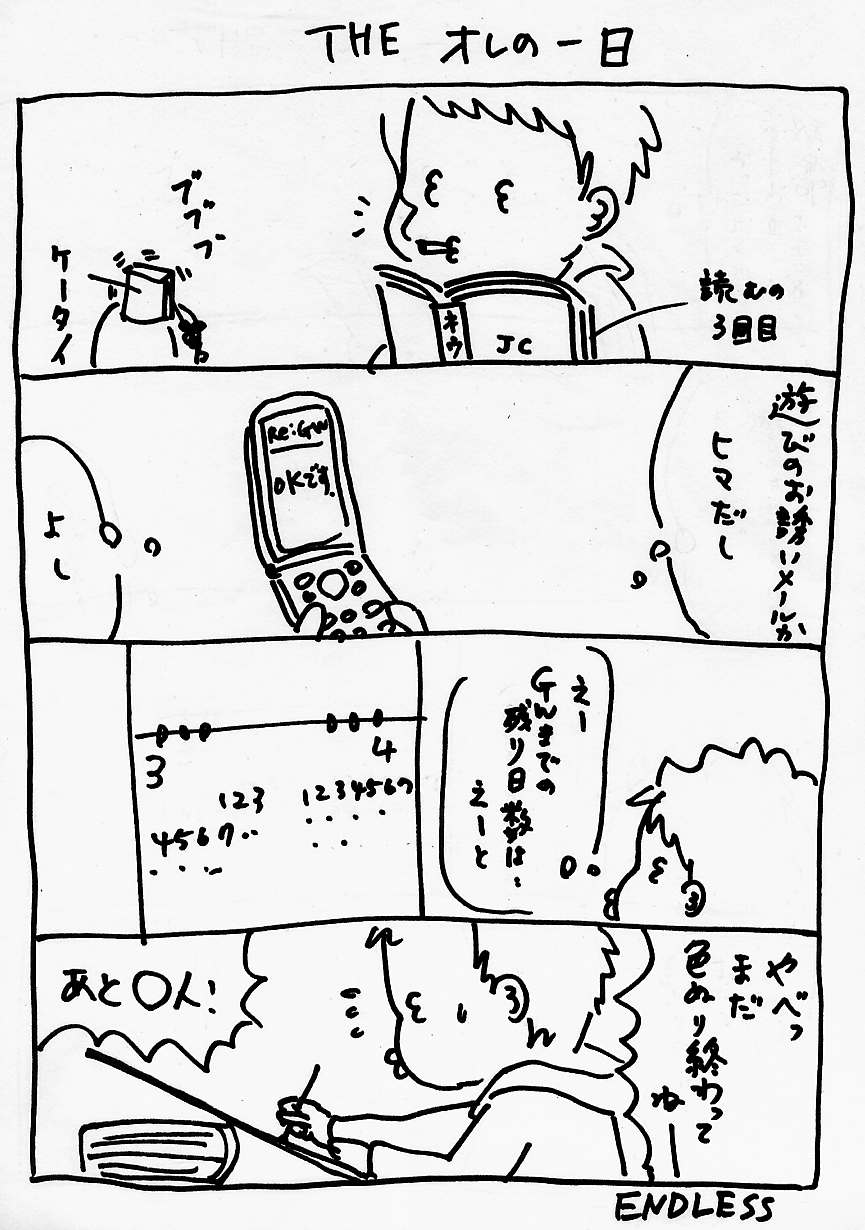 THE オレの一日
読むの
3回目
ネウ
JC
ブブブ
ケータイ
遊びのお誘いメールか
ヒマだし
Re:GW
OKです。
よし
えー
GWまでの
残り日数は…
えーと
3
4
123
4567‥
1234567
やべっ
まだ
色ぬり終わって
ねー
あと〇人!
ENDLESS